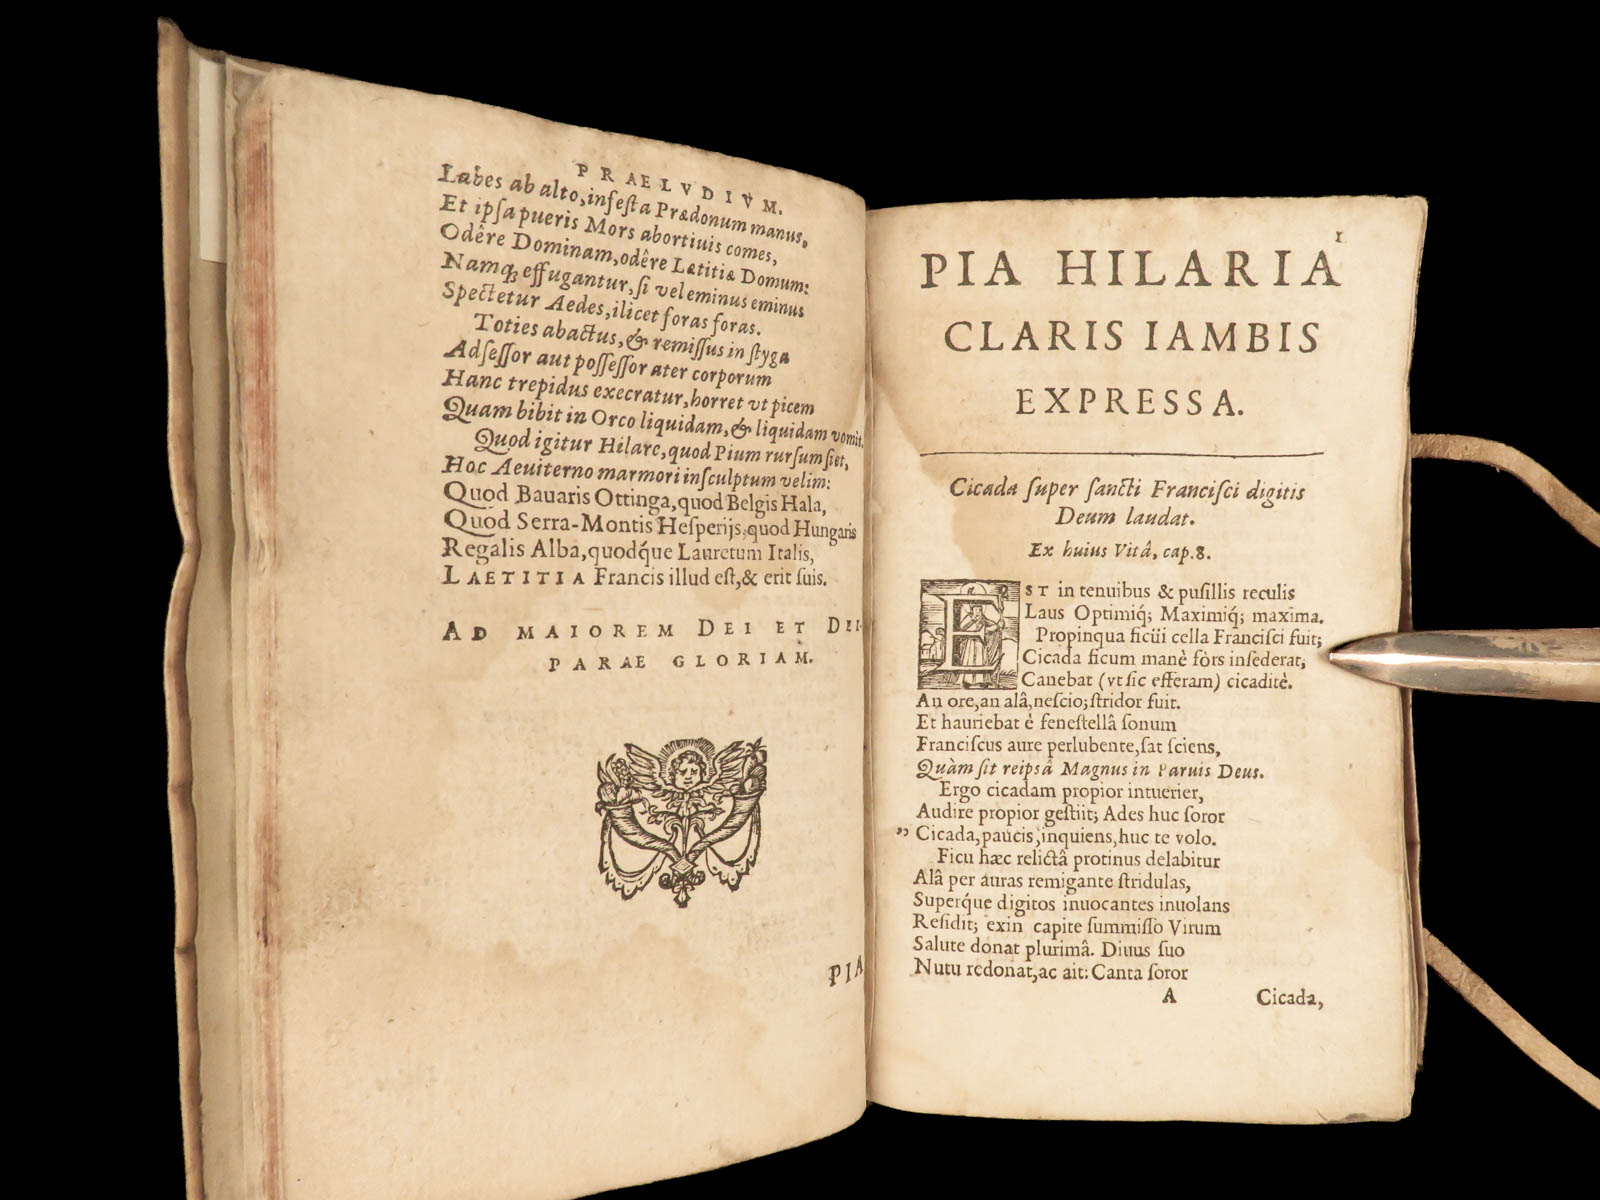 PRAELVDIVM.
Labes ab alto, infesta Prædonum manus,
Et ipsa pueris Mors abortiuis comes,
Odêre Dominam, odêre Lætitiæ Domum:
Namq; effugantur, si vel eminus eminus
Spectetur Aedes, ilicet foras foras.
Toties abactus, & remissus in styga
Adsessor aut possessor ater corporum
Hanc trepidus execratur, horret vt picem
Quam bibit in Orco liquidam, & liquidam vomit.
Quod igitur Hilare, quod Pium rursum siet,
Hoc Aeuiterno marmori insculptum velim:
Quod Bauaris Ottinga, quod Belgis Hala,
Quod Serra-Montis Hesperijs, quod Hungaris
Regalis Alba, quodq́ue Lauretum Italis,
LAETITIA Francis illud est, & erit suis.
AD MAIOREM DEI ET DEI-
PARAE GLORIAM.
PIA
1
PIA HILARIA
CLARIS IAMBIS
EXPRESSA.
Cicada super sancti Francisci digitis
Deum laudat.
Ex huius Vitâ, cap. 8.
EST in tenuibus & pusillis reculis
Laus Optimiq́; Maximiq́; maxima.
Propinqua ficüi cella Francisci fuit;
Cicada ficum manè fòrs insederat,
Canebat (vt sic efferam) cicaditè.
An ore, an alâ, nescio; stridor fuit.
Et hauriebat è fenestellâ sonum
Franciscus aure perlubente, sat sciens,
Quàm sit reipsâ Magnus in Paruis Deus.
Ergo cicadam propior intuerier,
Audire propior gestiit; Ades huc soror
" Cicada, paucis, inquiens, huc te volo.
Ficu hæc relictâ protinus delabitur
Alâ per auras remigante stridulas,
Superq́ue digitos inuocantes inuolans
Residit; exin capite summisso Virum
Salute donat plurimâ. Diuus suo
Nutu redonat, ac ait: Canta soror
A
Cicada,